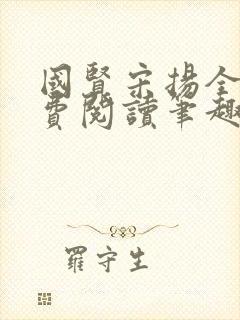 國賢宋揚全
費閱讀筆趣
羅守生